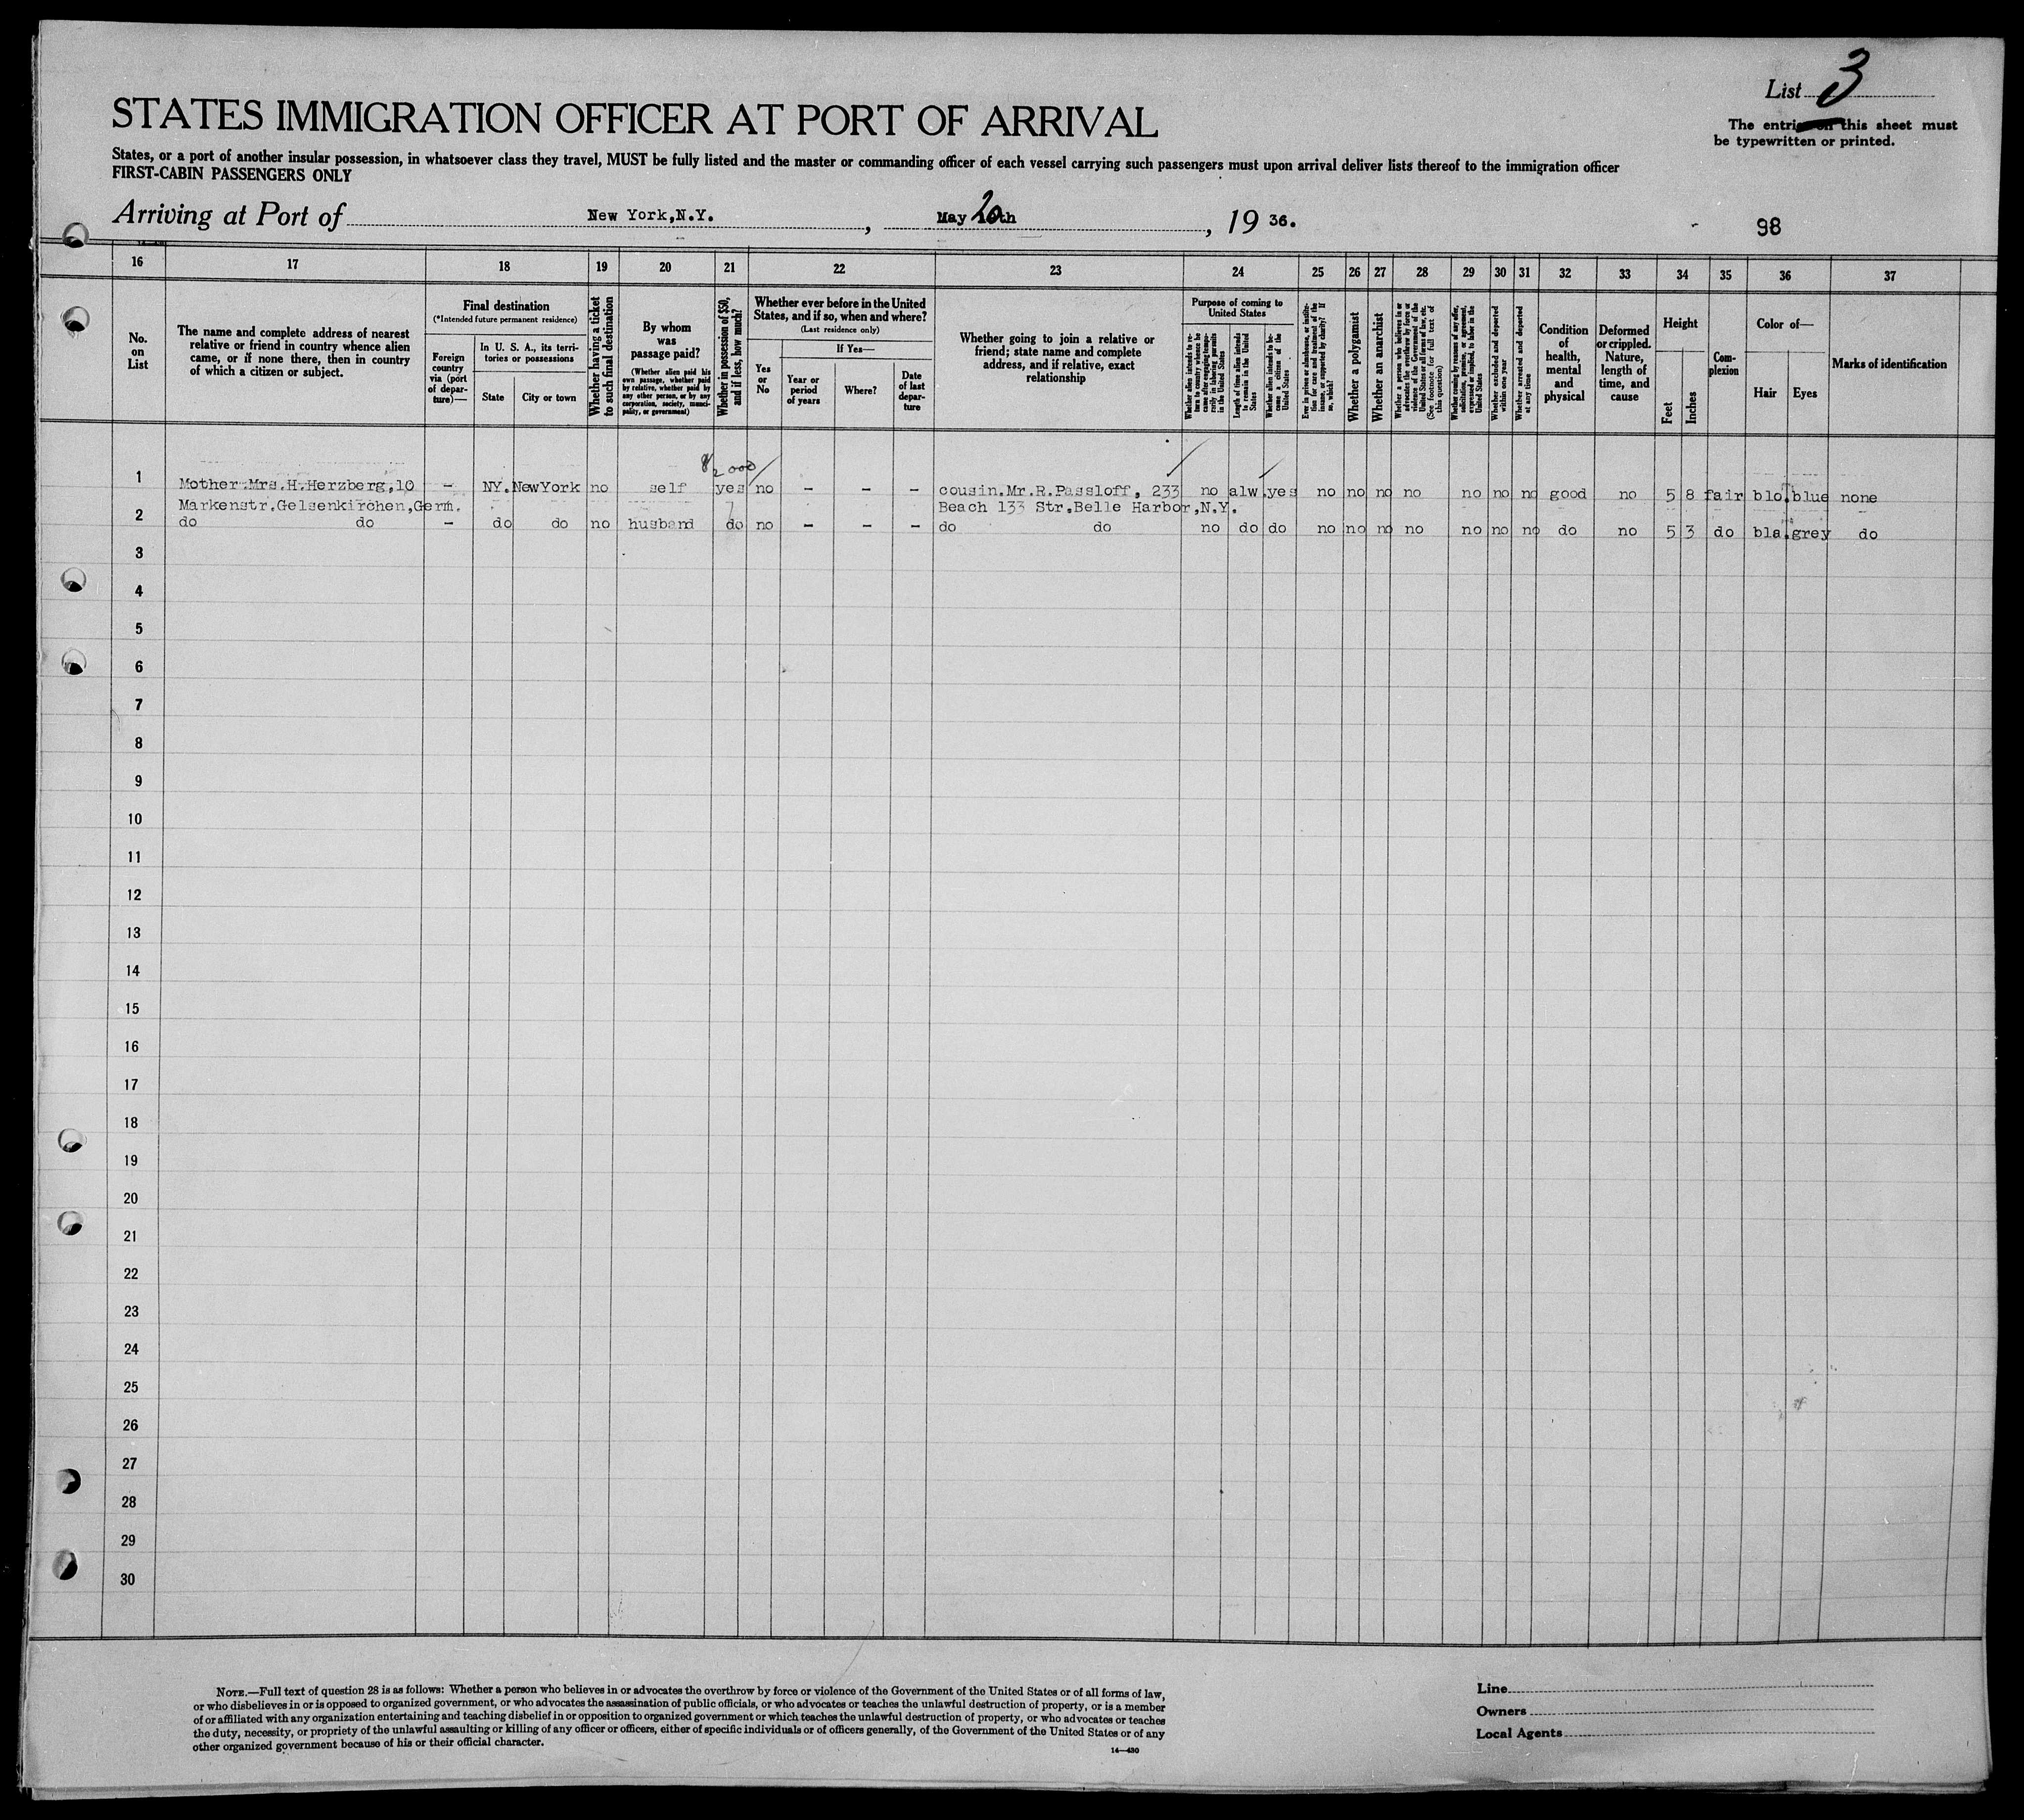 List 3
STATES IMMIGRATION OFFICER AT PORT OF ARRIVAL
The entries on this sheet must
be typewritten or printed.
States, or a port of another insular possession, in whatsoever class they travel, MUST be fully listed and the master or commanding officer of each vessel carrying such passengers must upon arrival deliver lists thereof to the immigration officer
FIRST-CABIN PASSENGERS ONLY
Arriving at Port of New York,N.Y. , May 20th , 19 36.
98
16 17 18 19 20 21 22 23 24 25 26 27 28 29 30 31 32 33 34 35 36 37
No.
on
List
The name and complete address of nearest
relative or friend in country whence alien
came, or if none there, then in country
of which a citizen or subject.
Final destination
(*Intended future permanent residence)
Foreign
country
via (port
of depar-
ture)—
In U. S. A., its terri-
tories or possessions
State
City or town
Whether having a ticket
to such final destination
By whom
was
passage paid?
(Whether alien paid his
own passage, whether paid
by relative, whether paid by
any other person, or by any
corporation, society, munici-
pality, or government)
Whether in possession of $50,
and if less, how much?
Whether ever before in the United
States, and if so, when and where?
(Last residence only)
Yes
or
No
If Yes—
Year or
period
of years
Where?
Date
of last
depar-
ture
Whether going to join a relative or
friend; state name and complete
address, and if relative, exact
relationship
Purpose of coming to
United States
Whether alien intends to re-
turn to country whence he
came after engaging tempo-
rarily in laboring pursuits
in the United States
Length of time alien intends
to remain in the United
States
Whether alien intends to be-
come a citizen of the
United States
Ever in prison or almshouse, or institu-
tion for care and treatment of the
insane, or supported by charity? If
so, which?
Whether a polygamist
Whether an anarchist
Whether a person who believes in or
advocates the overthrow by force or
violence of the Government of the
United States or all forms of law, etc.
(See footnote for full text of
this question)
Whether coming by reason of any offer,
solicitation, promise, or agreement,
expressed or implied, to labor in the
United States
Whether excluded and deported
within one year
Whether arrested and deported
at any time
Condition
of
health,
mental
and
physical
Deformed
or crippled.
Nature,
length of
time, and
cause
Height
Feet
Inches
Com-
plexion
Color of—
Hair
Eyes
Marks of identification
1 Mother:Mrs.H.Herzberg,10 – NY. NewYork no self yes no – – – cousin.Mr.R.Passloff, 233 no alw. yes no no no no no no no good no 5 8 fair blo. blue none
Markenstr.Gelsenkirchen,Germ. Beach 133 Str.Belle Harbor,N.Y.
2 do do – do do no husband do no – – – do do no do do no no no no no no no do no 5 3 do bla. grey do
3
4
5
6
7
8
9
10
11
12
13
14
15
16
17
18
19
20
21
22
23
24
25
26
27
28
29
30
NOTE.—Full text of question 28 is as follows: Whether a person who believes in or advocates the overthrow by force or violence of the Government of the United States or of all forms of law,
or who disbelieves in or is opposed to organized government, or who advocates the assassination of public officials, or who advocates or teaches the unlawful destruction of property, or is a member
of or affiliated with any organization entertaining and teaching disbelief in or opposition to organized government or which teaches the unlawful destruction of property, or who advocates or teaches
the duty, necessity, or propriety of the unlawful assaulting or killing of any officer or officers, either of specific individuals or of officers generally, of the Government of the United States or of any
other organized government because of his or their official character.
14—430
Line
Owners
Local Agents